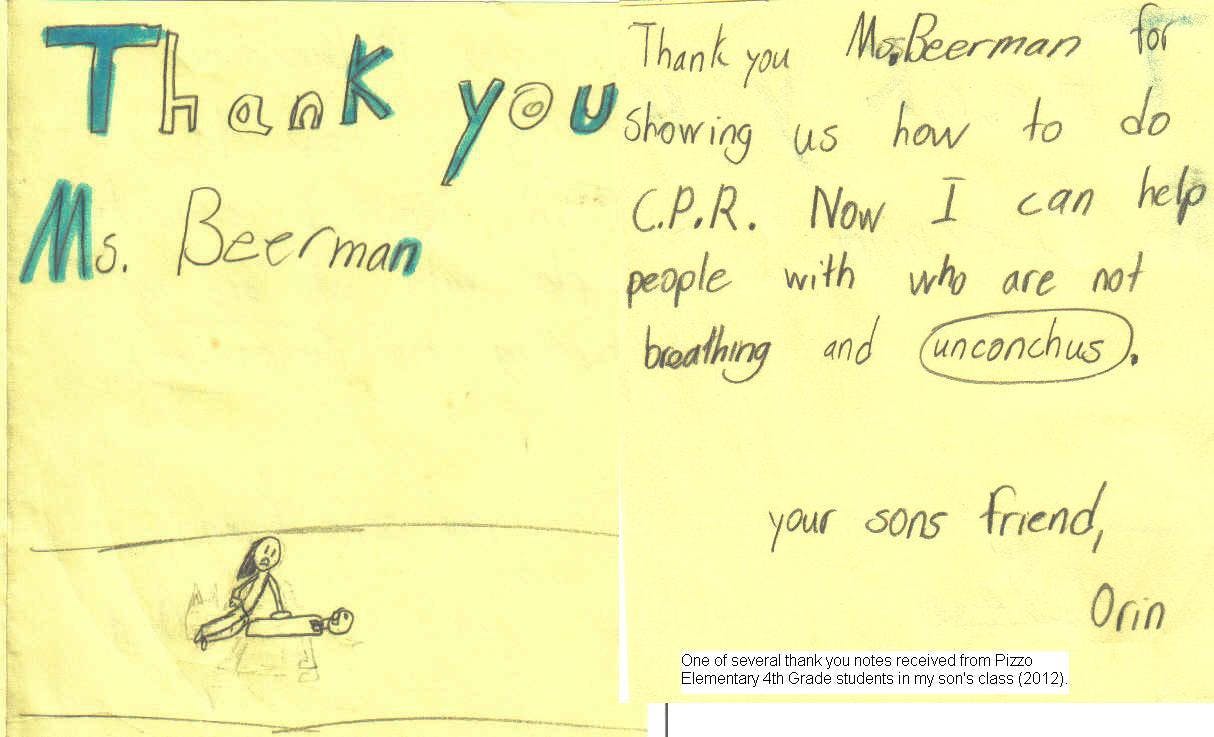 Thank you
Ms. Beerman
Thank you Ms. Beerman for
showing us how to do
C.P.R. Now I can help
people with who are not
breathing and unconchus.
your sons friend,
Orin
One of several thank you notes received from Pizzo
Elementary 4th Grade students in my son's class (2012).